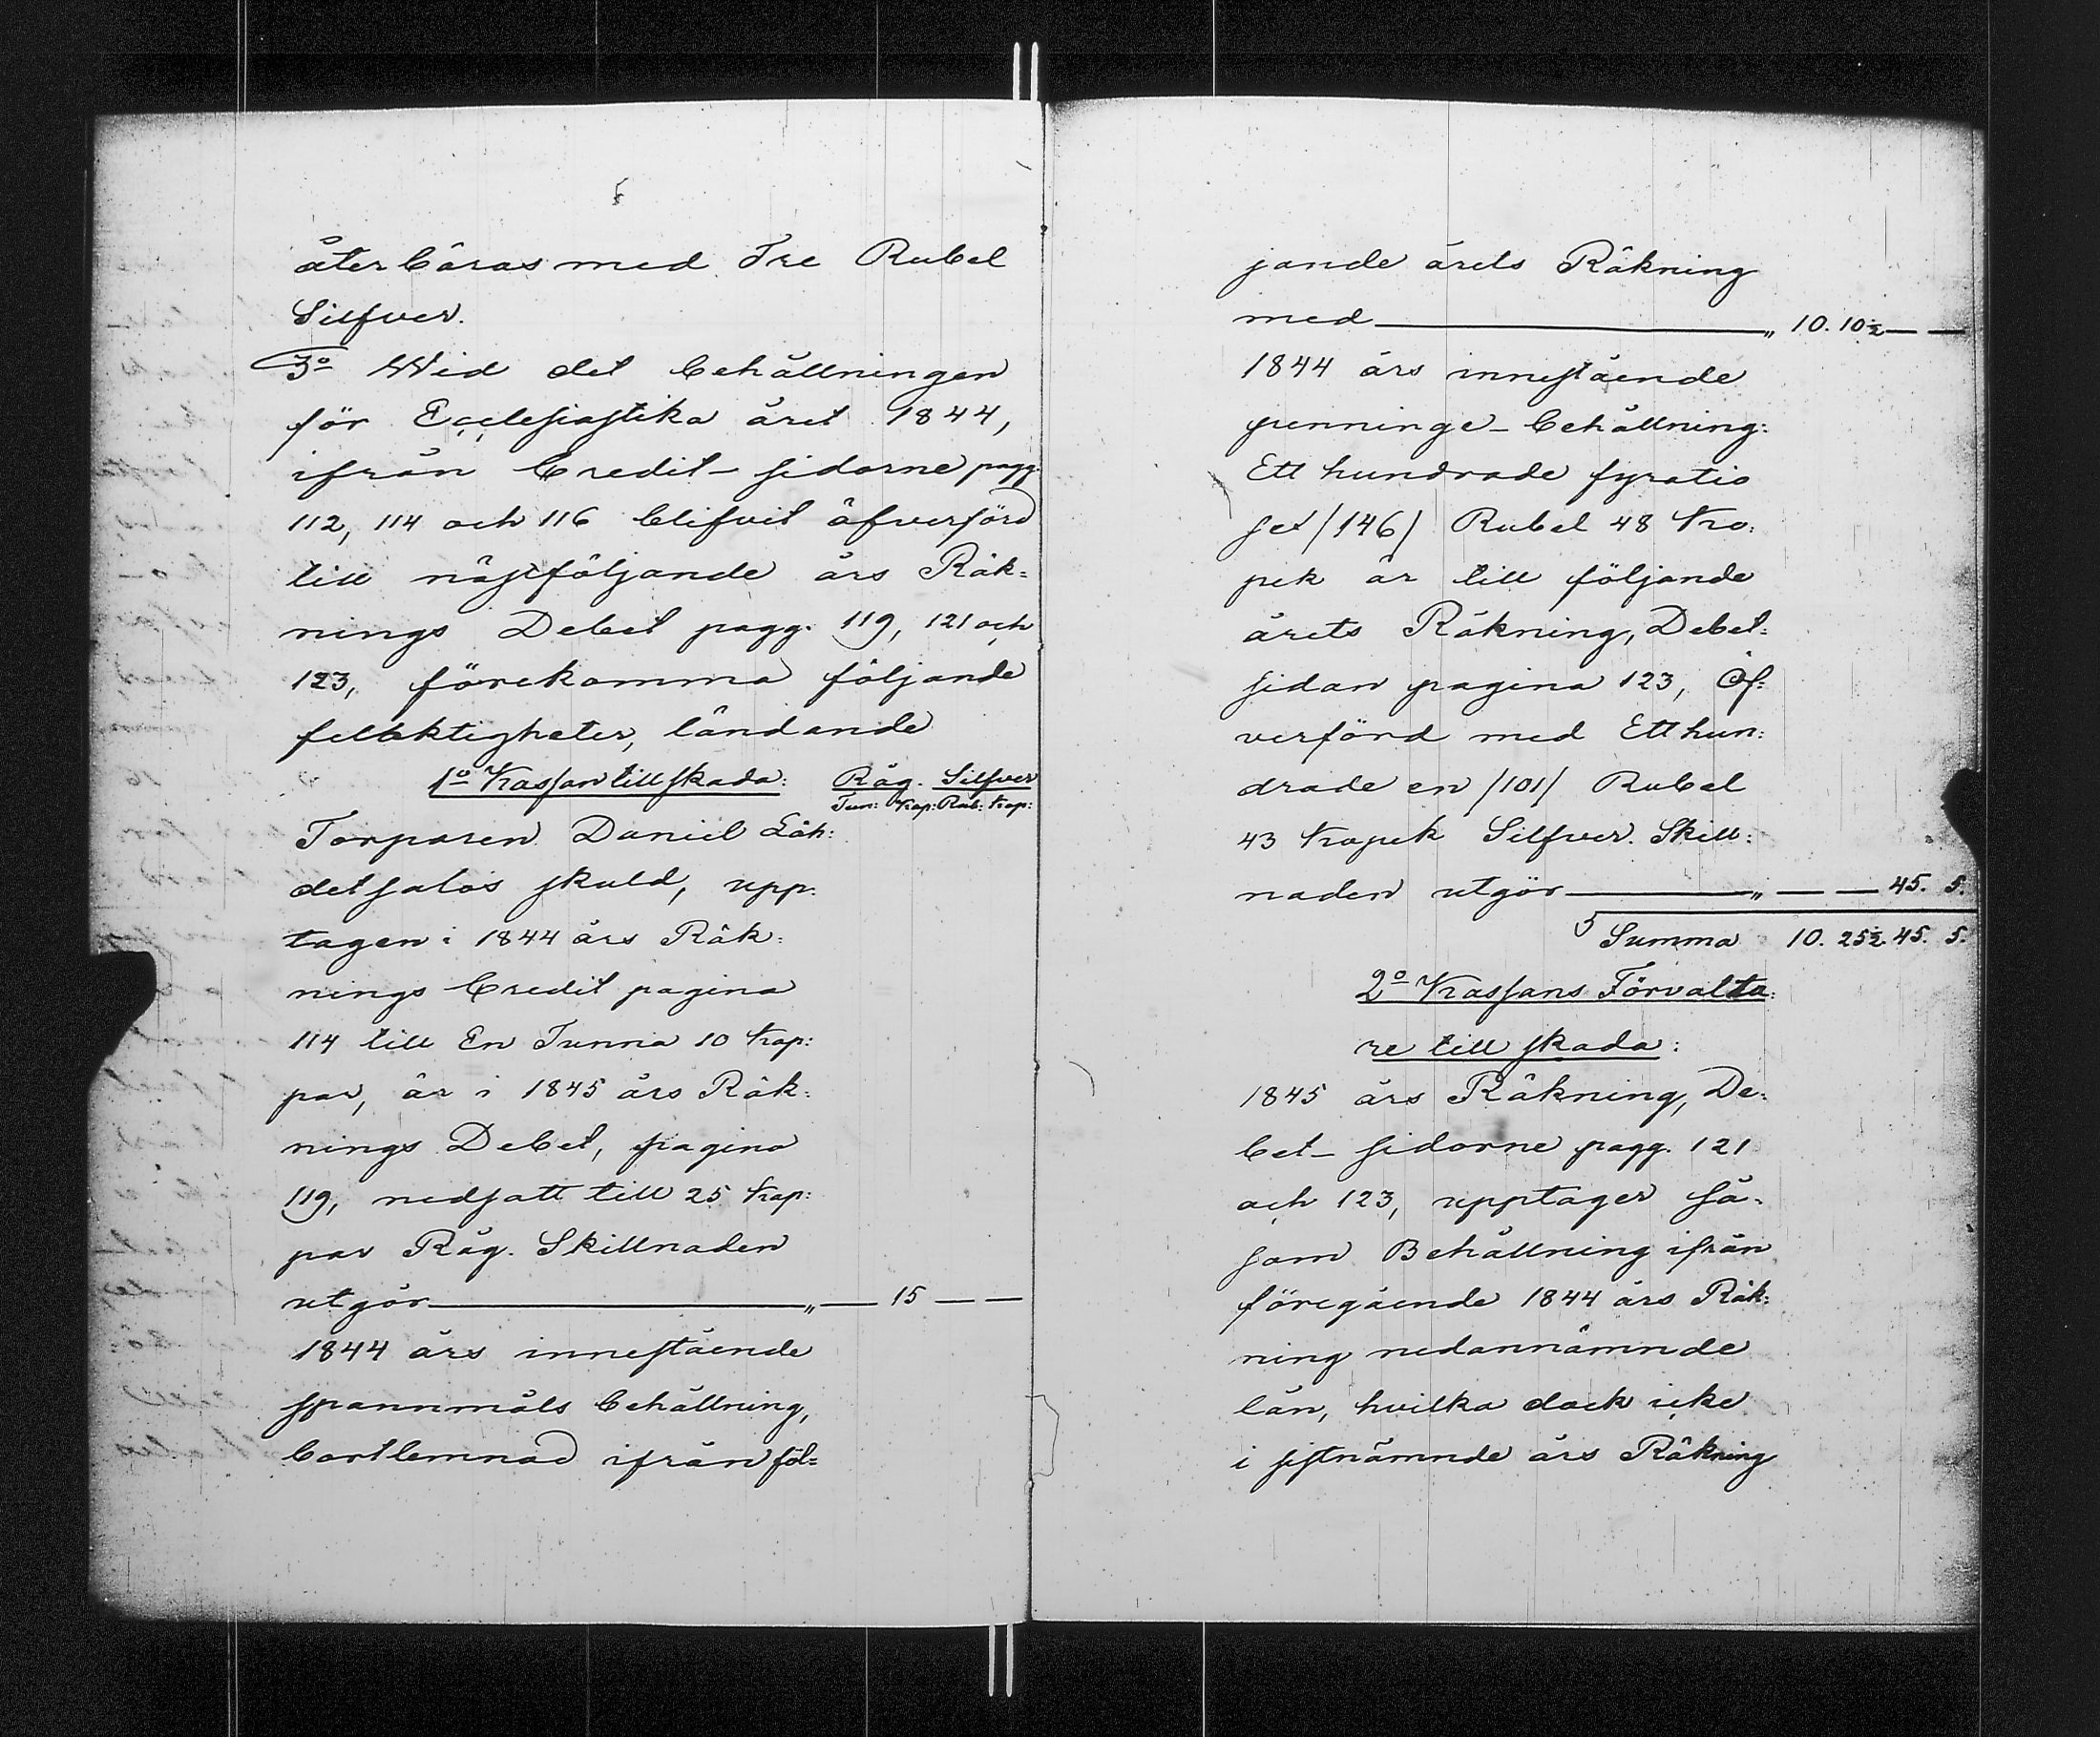 återbäras med Tre Rubel
Silfver.
3º Wid det behållningen
för Ecclesiastika året 1844,
ifrån Credit-sidorne pagg.
112, 114 och 116 blifvit öfverförd
till nästföljande års Räk=
nings Debet pagg. 119, 121 och
123, förekomma följande
felaktigheter, ländande
1º Kassan till skada: Råg. Silfver
Tun: Kap: Rub: Kop:
Torparen Daniel Läh:
detsalos skuld, upp:
tagen i 1844 års Räk:
nings Credit pagina
114 till En Tunna 10 Kap:
par, är i 1845 års Räk:
nings Debet, pagina
119, nedsatt till 25 Kap:
par Råg. Skillnaden
utgör ——— „ — 15 — —
1844 års innestående
spannmåls behållning,
bortlemnad ifrån föl=
jande årets Räkning
med ——— „ 10. 10½ — —
1844 års innestående
penninge-behållning:
Ett hundrade fyratio
sex /146/ Rubel 48 Ko:
pek är till följande
årets Räkning, Debet:
sidan pagina 123, Öf:
verförd med Ett hun:
drade en /101/ Rubel
43 Kopek Silfver. Skill:
naden utgör ——— „ — — 45. 5.
Summa 10. 25½ 45. 5.
2º Kassans Förvalta:
re till skada:
1845 års Räkning, De:
bet-sidorne pagg. 121
och 123, upptager så:
som Behållning ifrån
föregående 1844 års Räk:
ning nedannämnde
lån, hvilka dock icke
i sistnämnde års Räkning